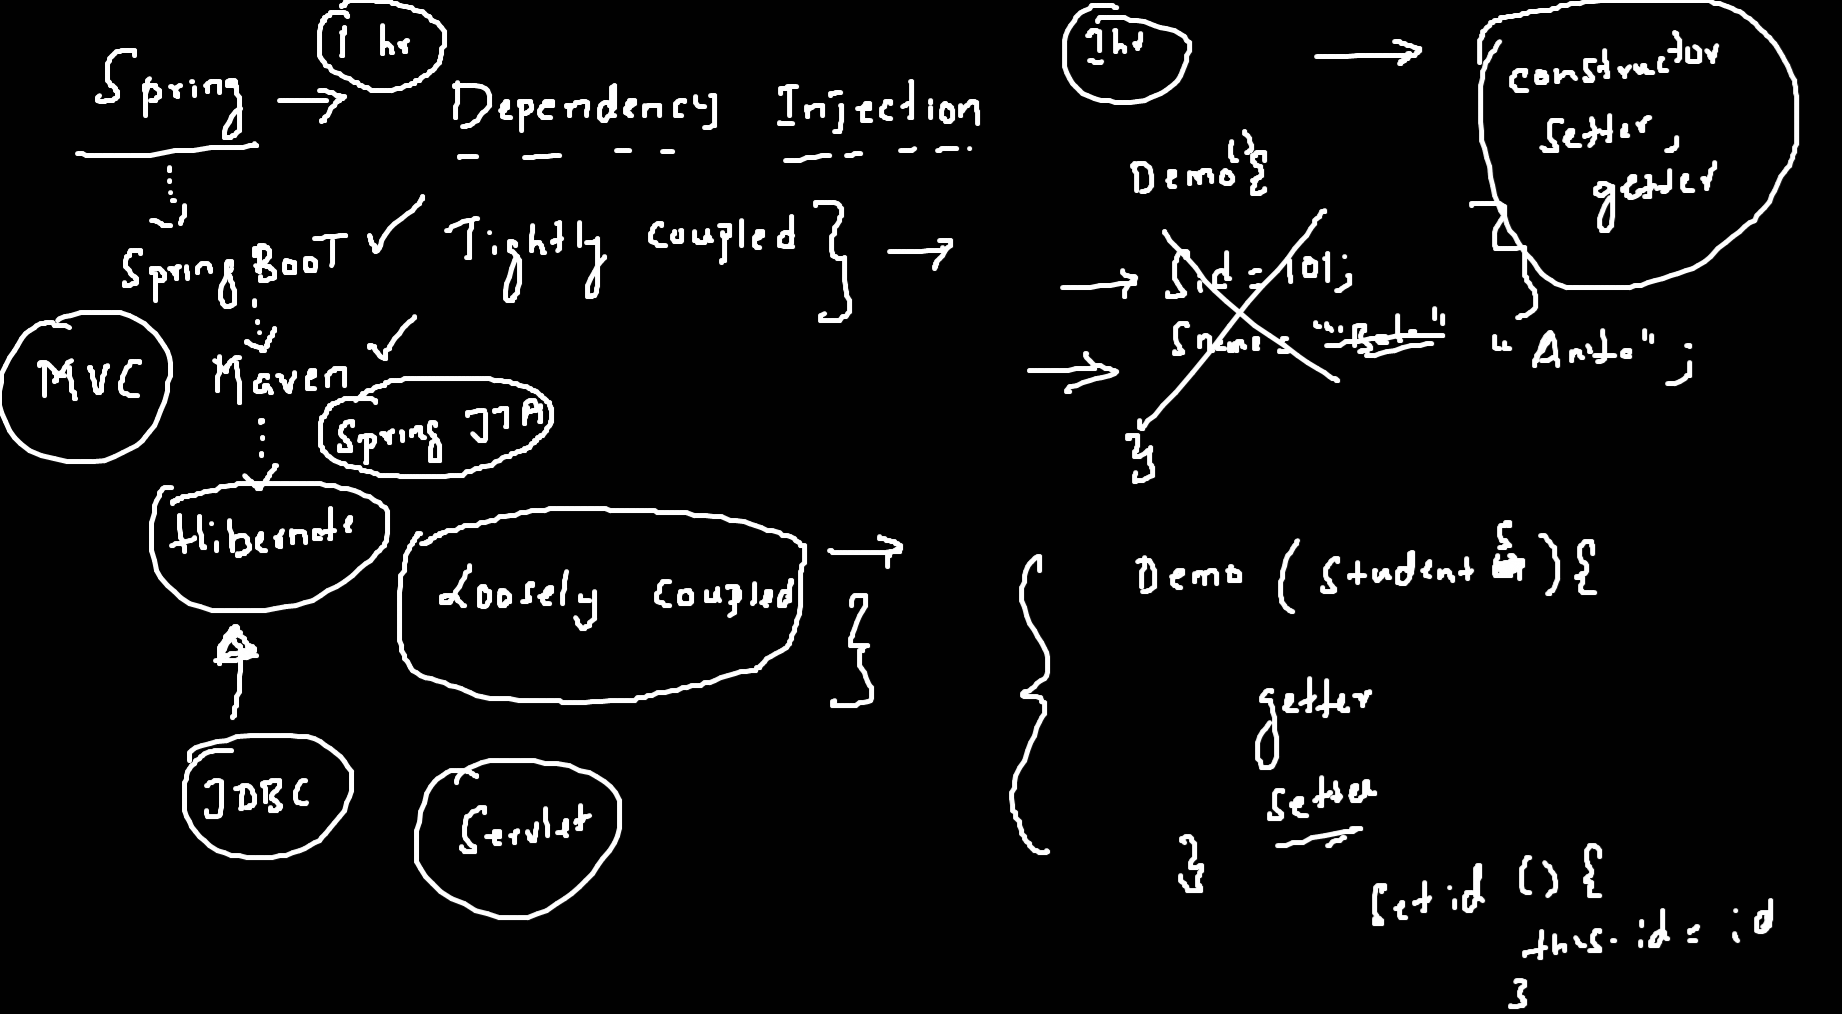 1 hr
Spring → Dependency Injection
Spring BooT ✓ Tightly coupled } →
MVC
Maven ✓
Spring JTA
Hibernate
Loosely coupled →
}
JDBC
Servlet
1hr → constructor
setter,
getter
Demo(){
→ Sid = 101;
→ Sname = " " "Anita";
}
Demo (Student s){
getter
setter
}
Set id () {
this.id = id
}